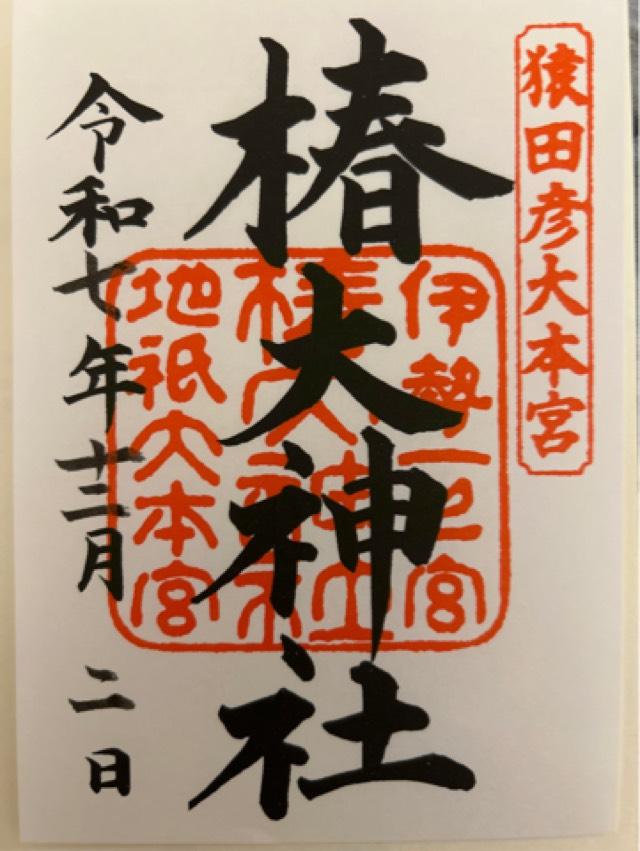 猿田彦大本宮
椿大神社
伊勢一之宮
椿大神社
地祇大本宮
令和七年十二月 二日